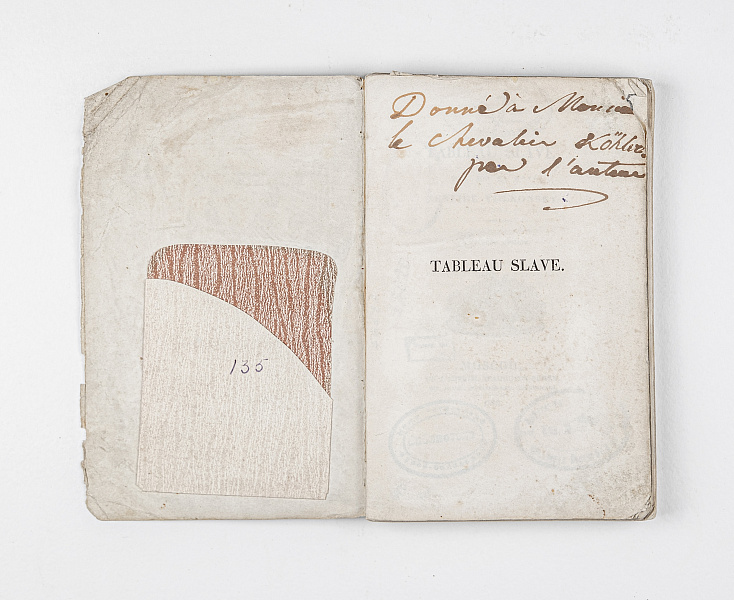 135
Donné à
le Chevalier Köhler
par l'auteur
TABLEAU SLAVE.